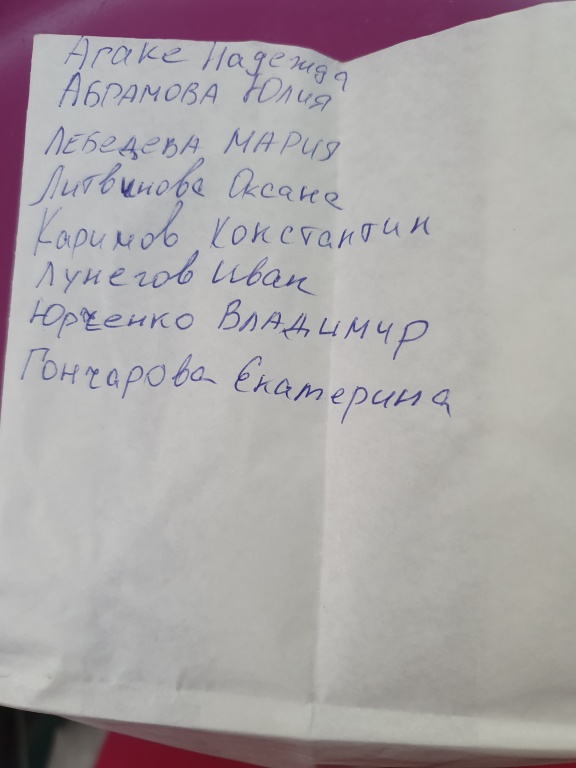 Агаке Надежда
АБРАМОВА Юлия
ЛЕБЕДЕВА МАРИЯ
Литвинова Оксана
Каримов Константин
Лунегов Иван
Юрченко ВЛАДИМИР
Гончарова Екатерина